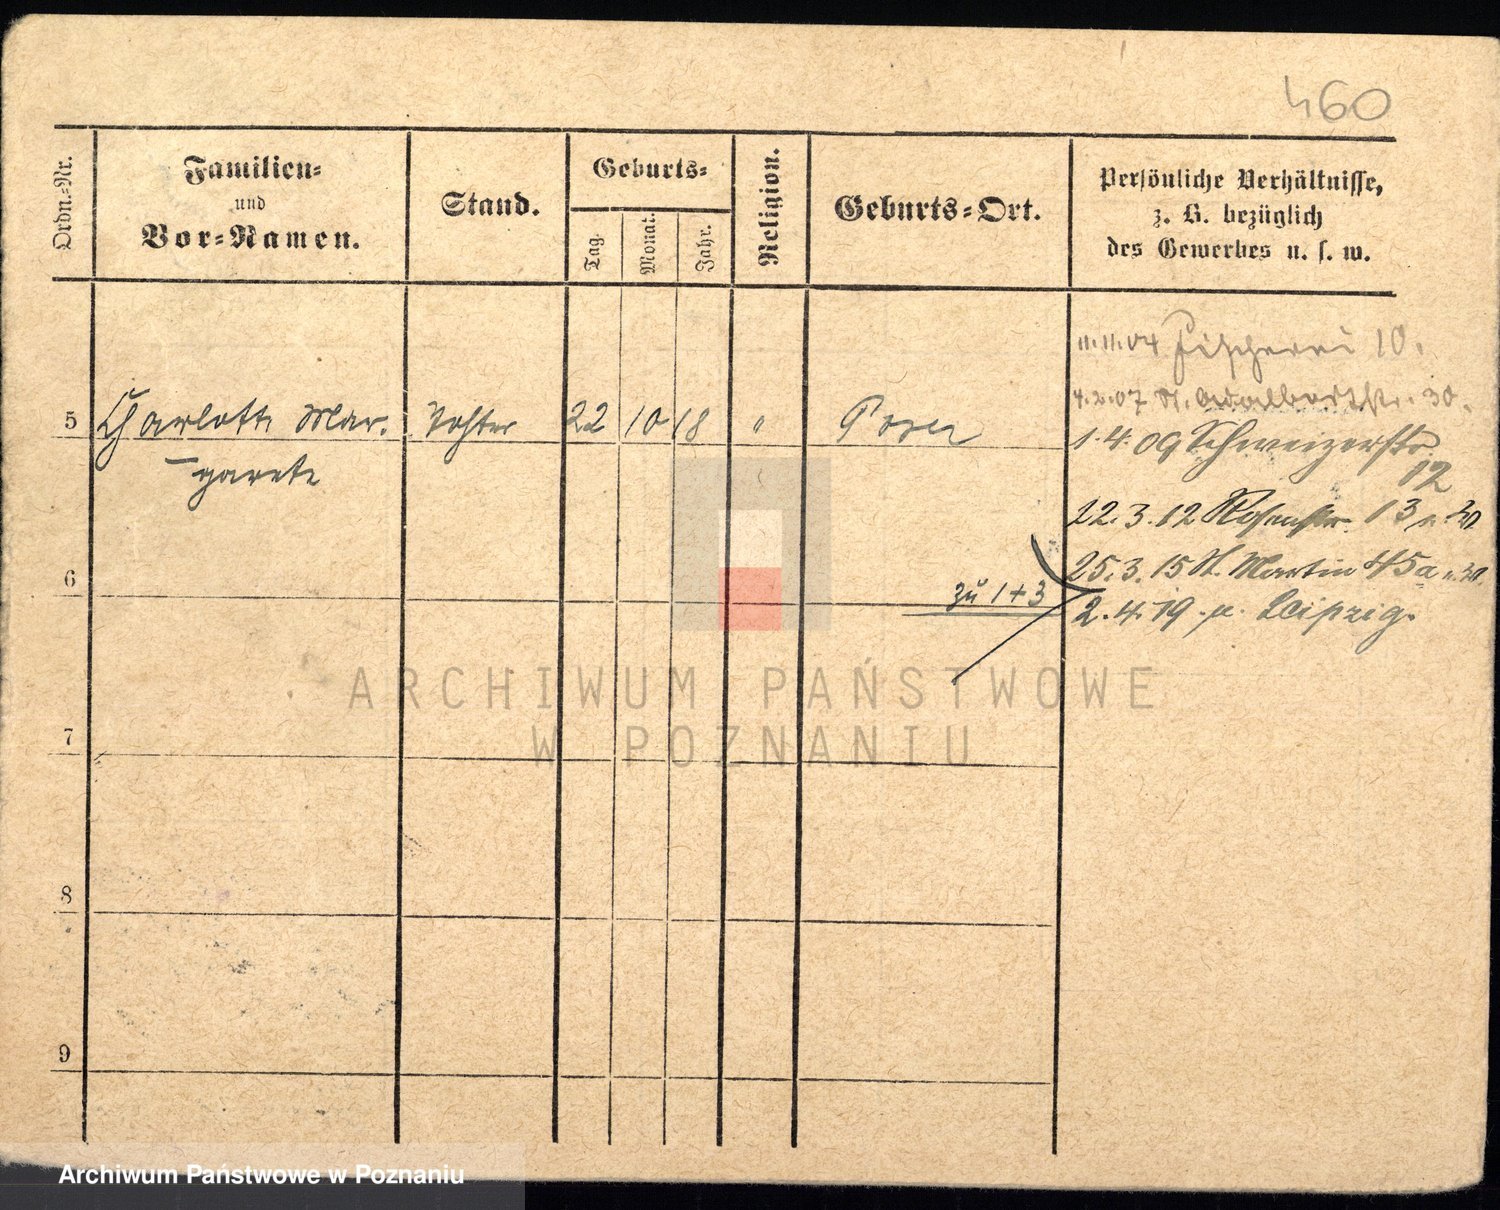 460
Ordn.-Nr.
Familien-
und
Vor-Namen.
Stand.
Geburts-
Tag.
Monat.
Jahr.
Religion.
Geburts-Ort.
Persönliche Verhältnisse,
z. B. bezüglich
des Gewerbes u. s. w.
11.11.04 Fischerei 10.
4.2.07 St. Adalbertstr. 30.
5 Charlotte Mar- Tochter 22 10 18 " Posen
garete
1.4.09 Schweizerstr.
12
22.3.12 Rosenstr. 13
25.3.15 St. Martin 45a
6
zu 1+3
2.4.19 n. Leipzig.
7
8
9
ARCHIWUM PAŃSTWOWE
W POZNANIU
Archiwum Państwowe w Poznaniu